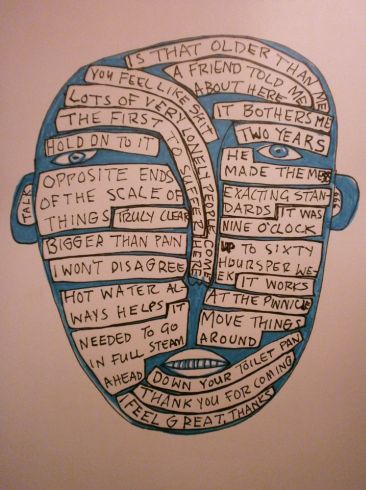 IS THAT OLDER THAN ME
A FRIEND TOLD ME
ABOUT HERE
YOU FEEL LIKE SHIT
LOTS OF VERY LONELY PEOPLE COME HERE
THE FIRST TO SUFFER
HOLD ON TO IT
IT BOTHERS ME
TWO YEARS
HE
MADE THE MESS
TALK
OPPOSITE ENDS
OF THE SCALE OF
THINGS
TRULY CLEAR
BIGGER THAN PAIN
I WON'T DISAGREE
HOT WATER AL-
WAYS HELPS
IT
NEEDED TO GO
IN FULL STEAM
AHEAD
EXACTING STAN-
DARDS
IT WAS
NINE O'CLOCK
UP TO SIXTY
HOURS PER WE-
EK
IT WORKS
AT THE PINNICLE
MOVE THINGS
AROUND
DOWN YOUR TOILET PAN
THANK YOU FOR COMING
FEEL GREAT, THANKS